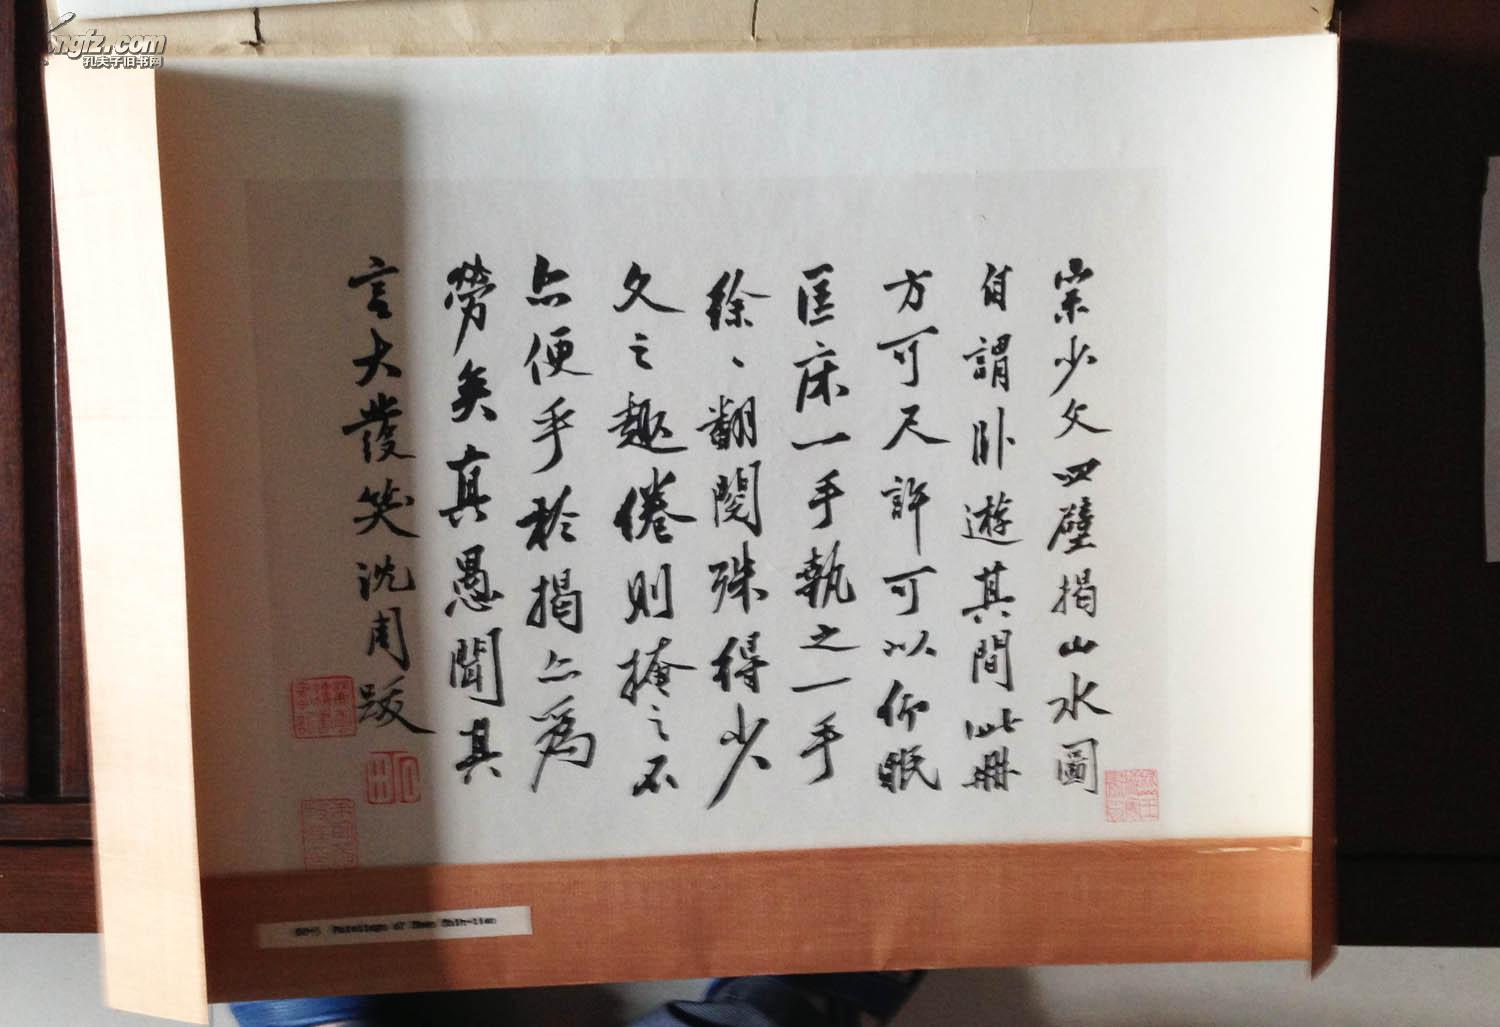 宗少文四壁揭山水圖
自謂卧遊其間此冊
方可尺許可以仰眠
匡床一手執之一手
徐、翻閱殊得少
文之趣倦則掩之不
亦便乎於揭亦為
勞矣真愚聞其
言大發笑沈周跋
Paintings of Shen Shih-tien
孔夫子旧书网